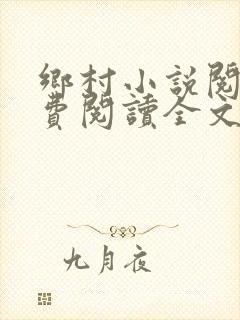 鄉村小說閱
費閱讀全文
九月夜